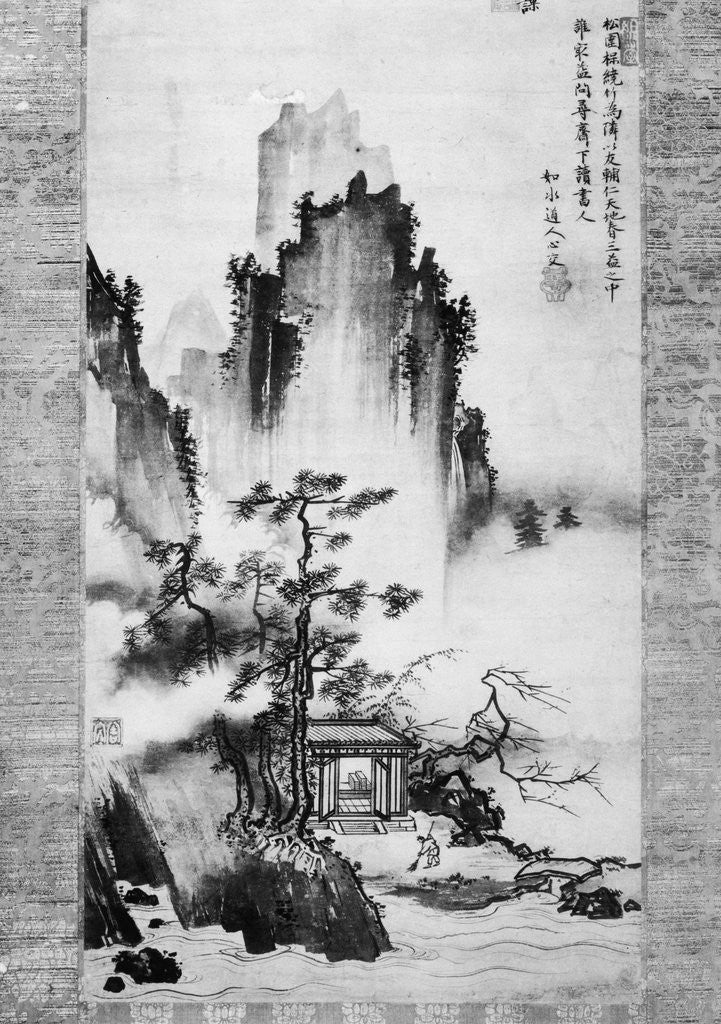 謀
松圍梅繞竹為隣以友輔仁天地春三益之中
誰寂益問尋齋下讀書人
如水道人心交